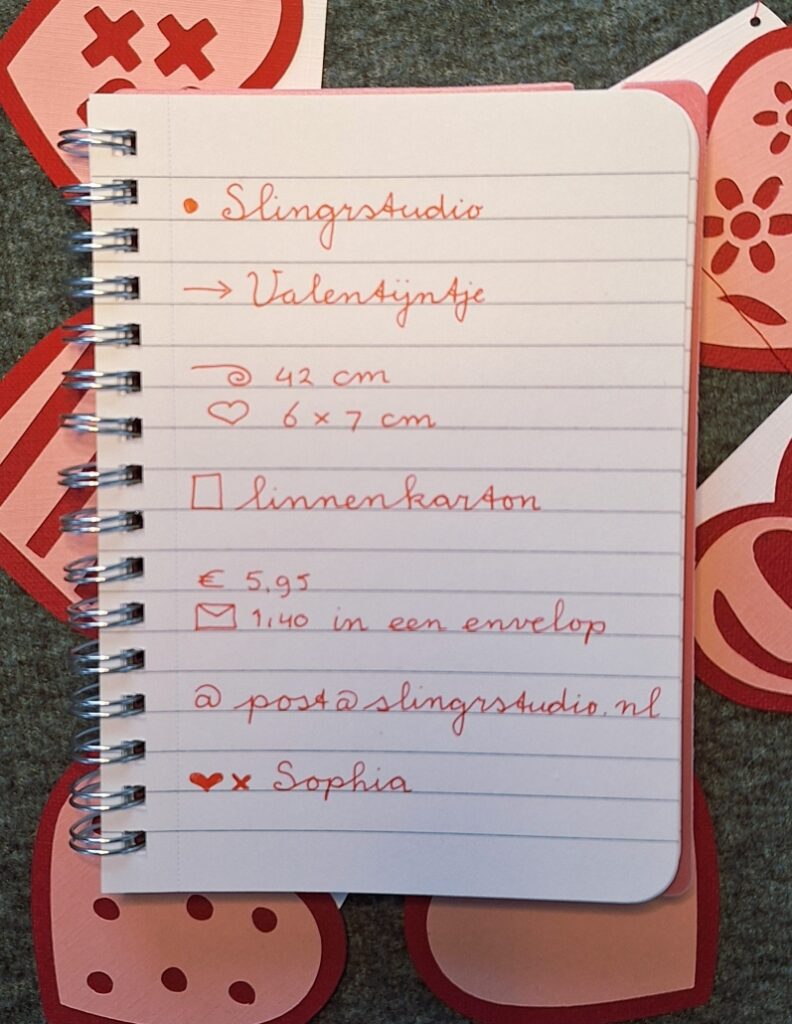 • Slingrstudio
→ Valentijntje
42 cm
♡ 6 x 7 cm
linnenkarton
€ 5,95
1,40 in een envelop
@ post@slingrstudio.nl
♥ x Sophia